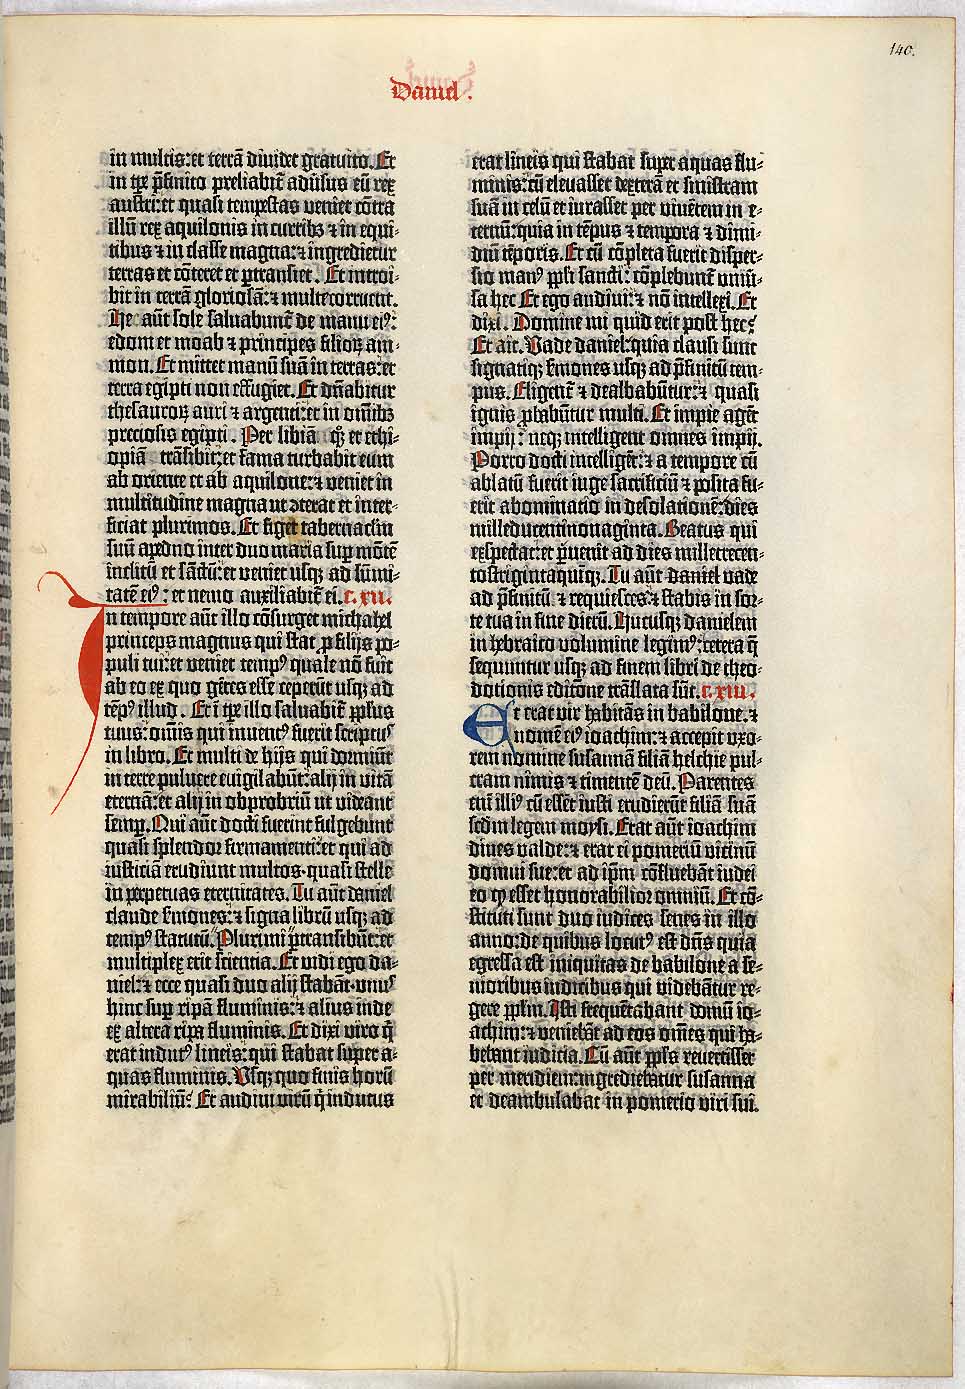 140.
Daniel.
in multis: et terrā dividet gratuito. Et
in tp̄e p̄finito preliabit̄ adūsus eū rex
austri: et quasi tempestas veniet cōtra
illū rex aquilonis in curribꝫ ⁊ in equi-
tibus ⁊ in classe magna: ⁊ ingredietur
terras et cōteret et ꝑtransiet. Et introi-
bit in terrā gloriosā: ⁊ multe corruent.
He aūt sole saluabunt̄ de manu eiꝰ:
edom et moab ⁊ principes filioꝝ am-
mon. Et mittet manū suā in terras: et
terra egipti non effugiet. Et dn̄abitur
thesauroꝝ auri ⁊ argenti: et in om̄ibꝫ
preciosis egipti. Per libiā qꝫ et ethi-
opiā trāsibit: et fama turbabit eum
ab oriente et ab aquilone: ⁊ veniet in
multitudine magna ut ꝯterat et inter-
ficiat plurimos. Et figet tabernaclm̄
suū apedno inter duo maria suꝑ mōtē
inclitū et sāctū: et veniet usqꝫ ad sūmi-
tatē eiꝰ: et nemo auxiliabit̄ ei. c. xii.
In tempore aūt illo cōsurget michahel
princeps magnus qui stat ꝓ filijs po-
puli tui: et veniet tempꝰ quale nō fuit
ab eo ex quo gētes esse ceperūt usqꝫ ad
tēpꝰ illud. Et ī tp̄e illo saluabit̄ pp̄lus
tuus: om̄is qui inuentꝰ fuerit scriptuꝰ
in libro. Et multi de hijs qui dormiūt
in terre puluere euigilabūt: alij in vitā
eternā: et alij in obprobriū ut videant
semꝑ. Qui aūt docti fuerint fulgebunt
quasi splendor firmamenti: et qui ad
iusticiā erudiunt multos· quasi stelle
in ꝑpetuas eternitates. Tu aūt daniel
claude s̄mones: ⁊ signa librū usqꝫ ad
tempꝰ statutū. Plurimi ꝑtransibūt: et
multiplex erit scientia. Et vidi ego da-
niel: ⁊ ecce quasi duo alij stabāt· unuꝰ
hinc suꝑ ripā fluminis: ⁊ alius inde
ex altera ripa fluminis. Et dixi viro q̄
erat indutꝰ lineis: qui stabat super a-
quas fluminis. Vsqꝫ quo finis horū
mirabiliū? Et audiui virū q̄ indutus
erat lineis qui stabat super aquas flu-
minis: cū eleuasset dexterā et sinistram
suā in celū et iurasset per viuētem in e-
ternū: quia in tēpus ⁊ tempora ⁊ dimi-
diū tēporis. Et cū cōpleta fuerit disper-
sio manꝰ pp̄li sancti: cōplebunt̄ vniū-
sa hec Et ego audiui: ⁊ nō intellexi. Et
dixi. Domine mi quid erit post hec?
Et ait. Vade daniel: quia clausi sunt
signatiqꝫ s̄mones usqꝫ ad p̄finitū tem-
pus. Eligent̄ ⁊ dealbabūtur: ⁊ quasi
ignis ꝓbabūtur multi. Et impie agēt
impij: neqꝫ intelligent omnes impij.
Porro docti intelligēt: ⁊ a tempore cū
ablatū fuerit iuge sacrificiū ⁊ posita fu-
erit abominatio in desolationē: dies
milleducentinonaginta. Beatus qui
exspectat: et ꝑuenit ad dies milletrecen-
tostrigintaquinqꝫ. Tu aūt daniel vade
ad p̄finitū ⁊ requiesces: ⁊ stabis in sor-
te tua in fine dierū. Hucusqꝫ danielem
in hebraico volumine legimꝰ: cetera q̄
sequuntur usqꝫ ad finem libri de theo-
dotionis editione trāslata sūt. c. xiii.
Et erat vir habitās in babilone· ⁊
nomē eiꝰ ioachim: ⁊ accepit vxo-
rem nomine susannā filiā helchie pul-
cram nimis ⁊ timentē deū. Parentes
eni illiꝰ cū essēt iusti erudierūt filiā suā
scdm legem moysi. Erat aūt ioachim
diues valde: ⁊ erat ei pomeriū vicinū
domui sue: et ad ip̄m cōfluebāt iudei
eo ꝙ esset honorabilior omniū. Et cō-
stituti sunt duo iudices senes in illo
anno: de quibus locutꝰ est dn̄s quia
egressa est iniquitas de babilone a se-
nioribus iudicibus qui videbātur re-
gere pp̄lm. Isti frequētabant domū io-
achim: ⁊ veniebāt ad eos om̄es qui ha-
bebant iudicia. Cū aūt pp̄ls reuertisset
per meridiem: ingrediebatur susanna
et deambulabat in pomerio viri sui.